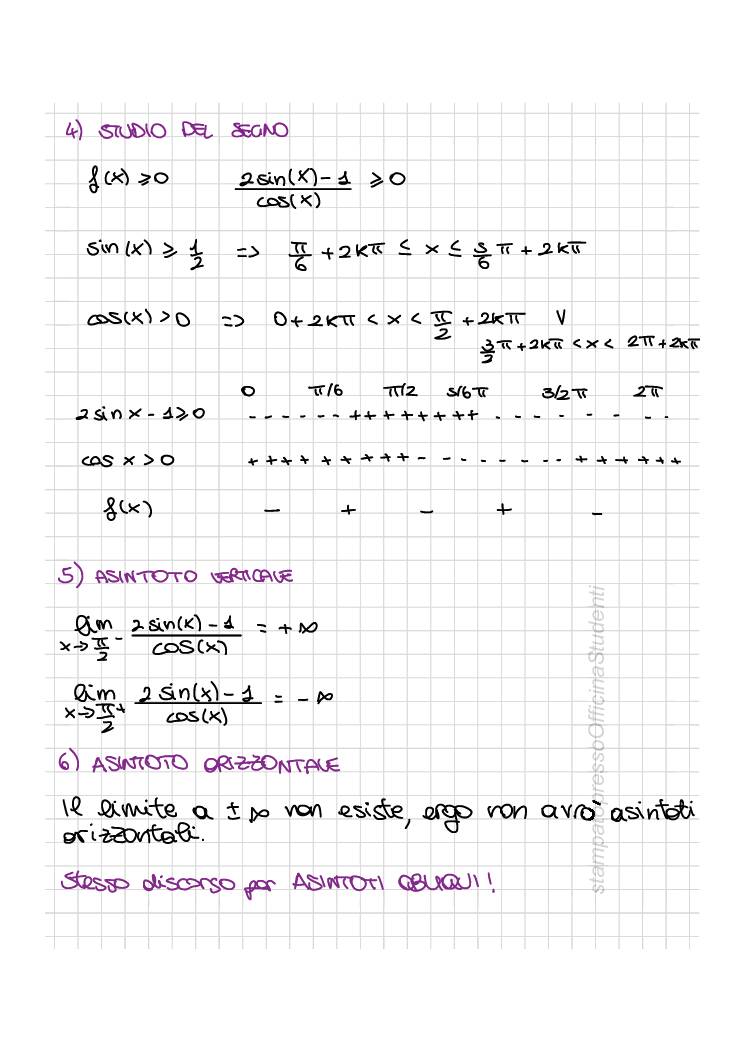 4) STUDIO DEL SEGNO
f(x) ≥ 0 (2sin(x) - 1)/cos(x) ≥ 0
sin(x) ≥ 1/2 => π/6 + 2kπ ≤ x ≤ 5/6 π + 2kπ
cos(x) > 0 => 0 + 2kπ < x < π/2 + 2kπ V
3/2 π + 2kπ < x < 2π + 2kπ
0 π/6 π/2 5/6 π 3/2 π 2π
2 sin x - 1 ≥ 0 - - - - - - + + + + + + + + - - - - - - - -
cos x > 0 + + + + + + + + + + - - - - - - - - + + + + + +
f(x) - + - + -
5) ASINTOTO VERTICALE
lim x→π/2⁻ (2 sin(x) - 1)/cos(x) = + ∞
lim x→π/2⁺ (2 sin(x) - 1)/cos(x) = - ∞
6) ASINTOTO ORIZZONTALE
Il limite a ± ∞ non esiste, ergo non avrò asintoti
orizzontali.
Stesso discorso per ASINTOTI OBLIQUI!
stampato presso Officina Studenti